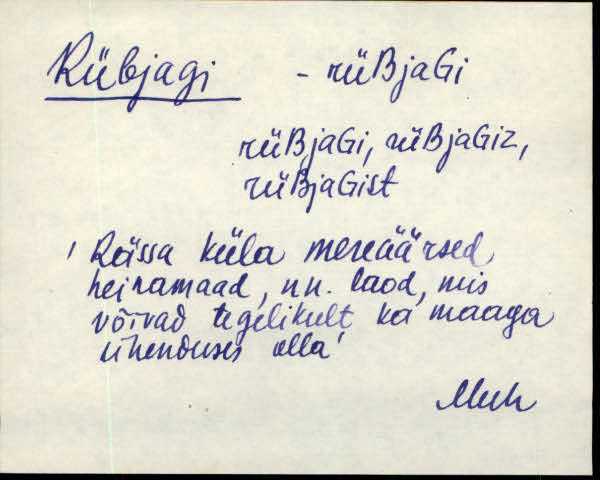 Rübjagi - rüBjaGi
rüBjaGi, rüBjaGiz,
rüBjaGist
' Rässa küla mereäärsed
heinamaad, nn. laod, mis
võivad tegelikult ka maaga
ühenduses olla'
Muh